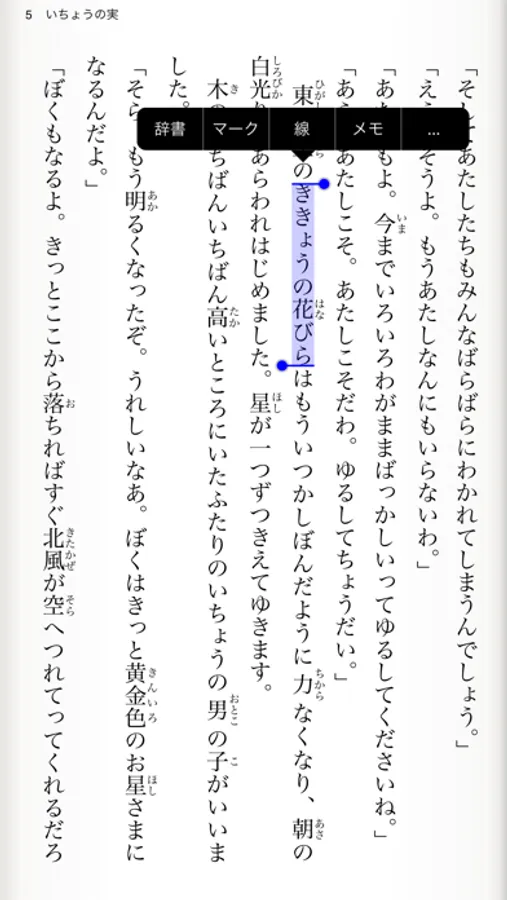 5 いちょうの実
辞書 マーク 線 メモ ...
「そてあたしたちもみんなばらばらにわかれてしまうんでしょう。」
「えそうよ。もうあたしなんにもいらないわ。」
「あもよ。今までいろいろわがままばっかしいってゆるしてくださいね。」
「ああたしこそ。あたしこそだわ。ゆるしてちょうだい。」
東のききょうの花びらはもういつかしぼんだように力なくなり、朝の
白光あらわれはじめました。星が一つずつきえてゆきます。
木ちばんいちばん高いところにいたふたりのいちょうの男の子がいいま
した。
「そらもう明るくなったぞ。うれしいなあ。ぼくはきっと黄金色のお星さまに
なるんだよ。」
「ぼくもなるよ。きっとここから落ちればすぐ北風が空へつれてってくれるだろ